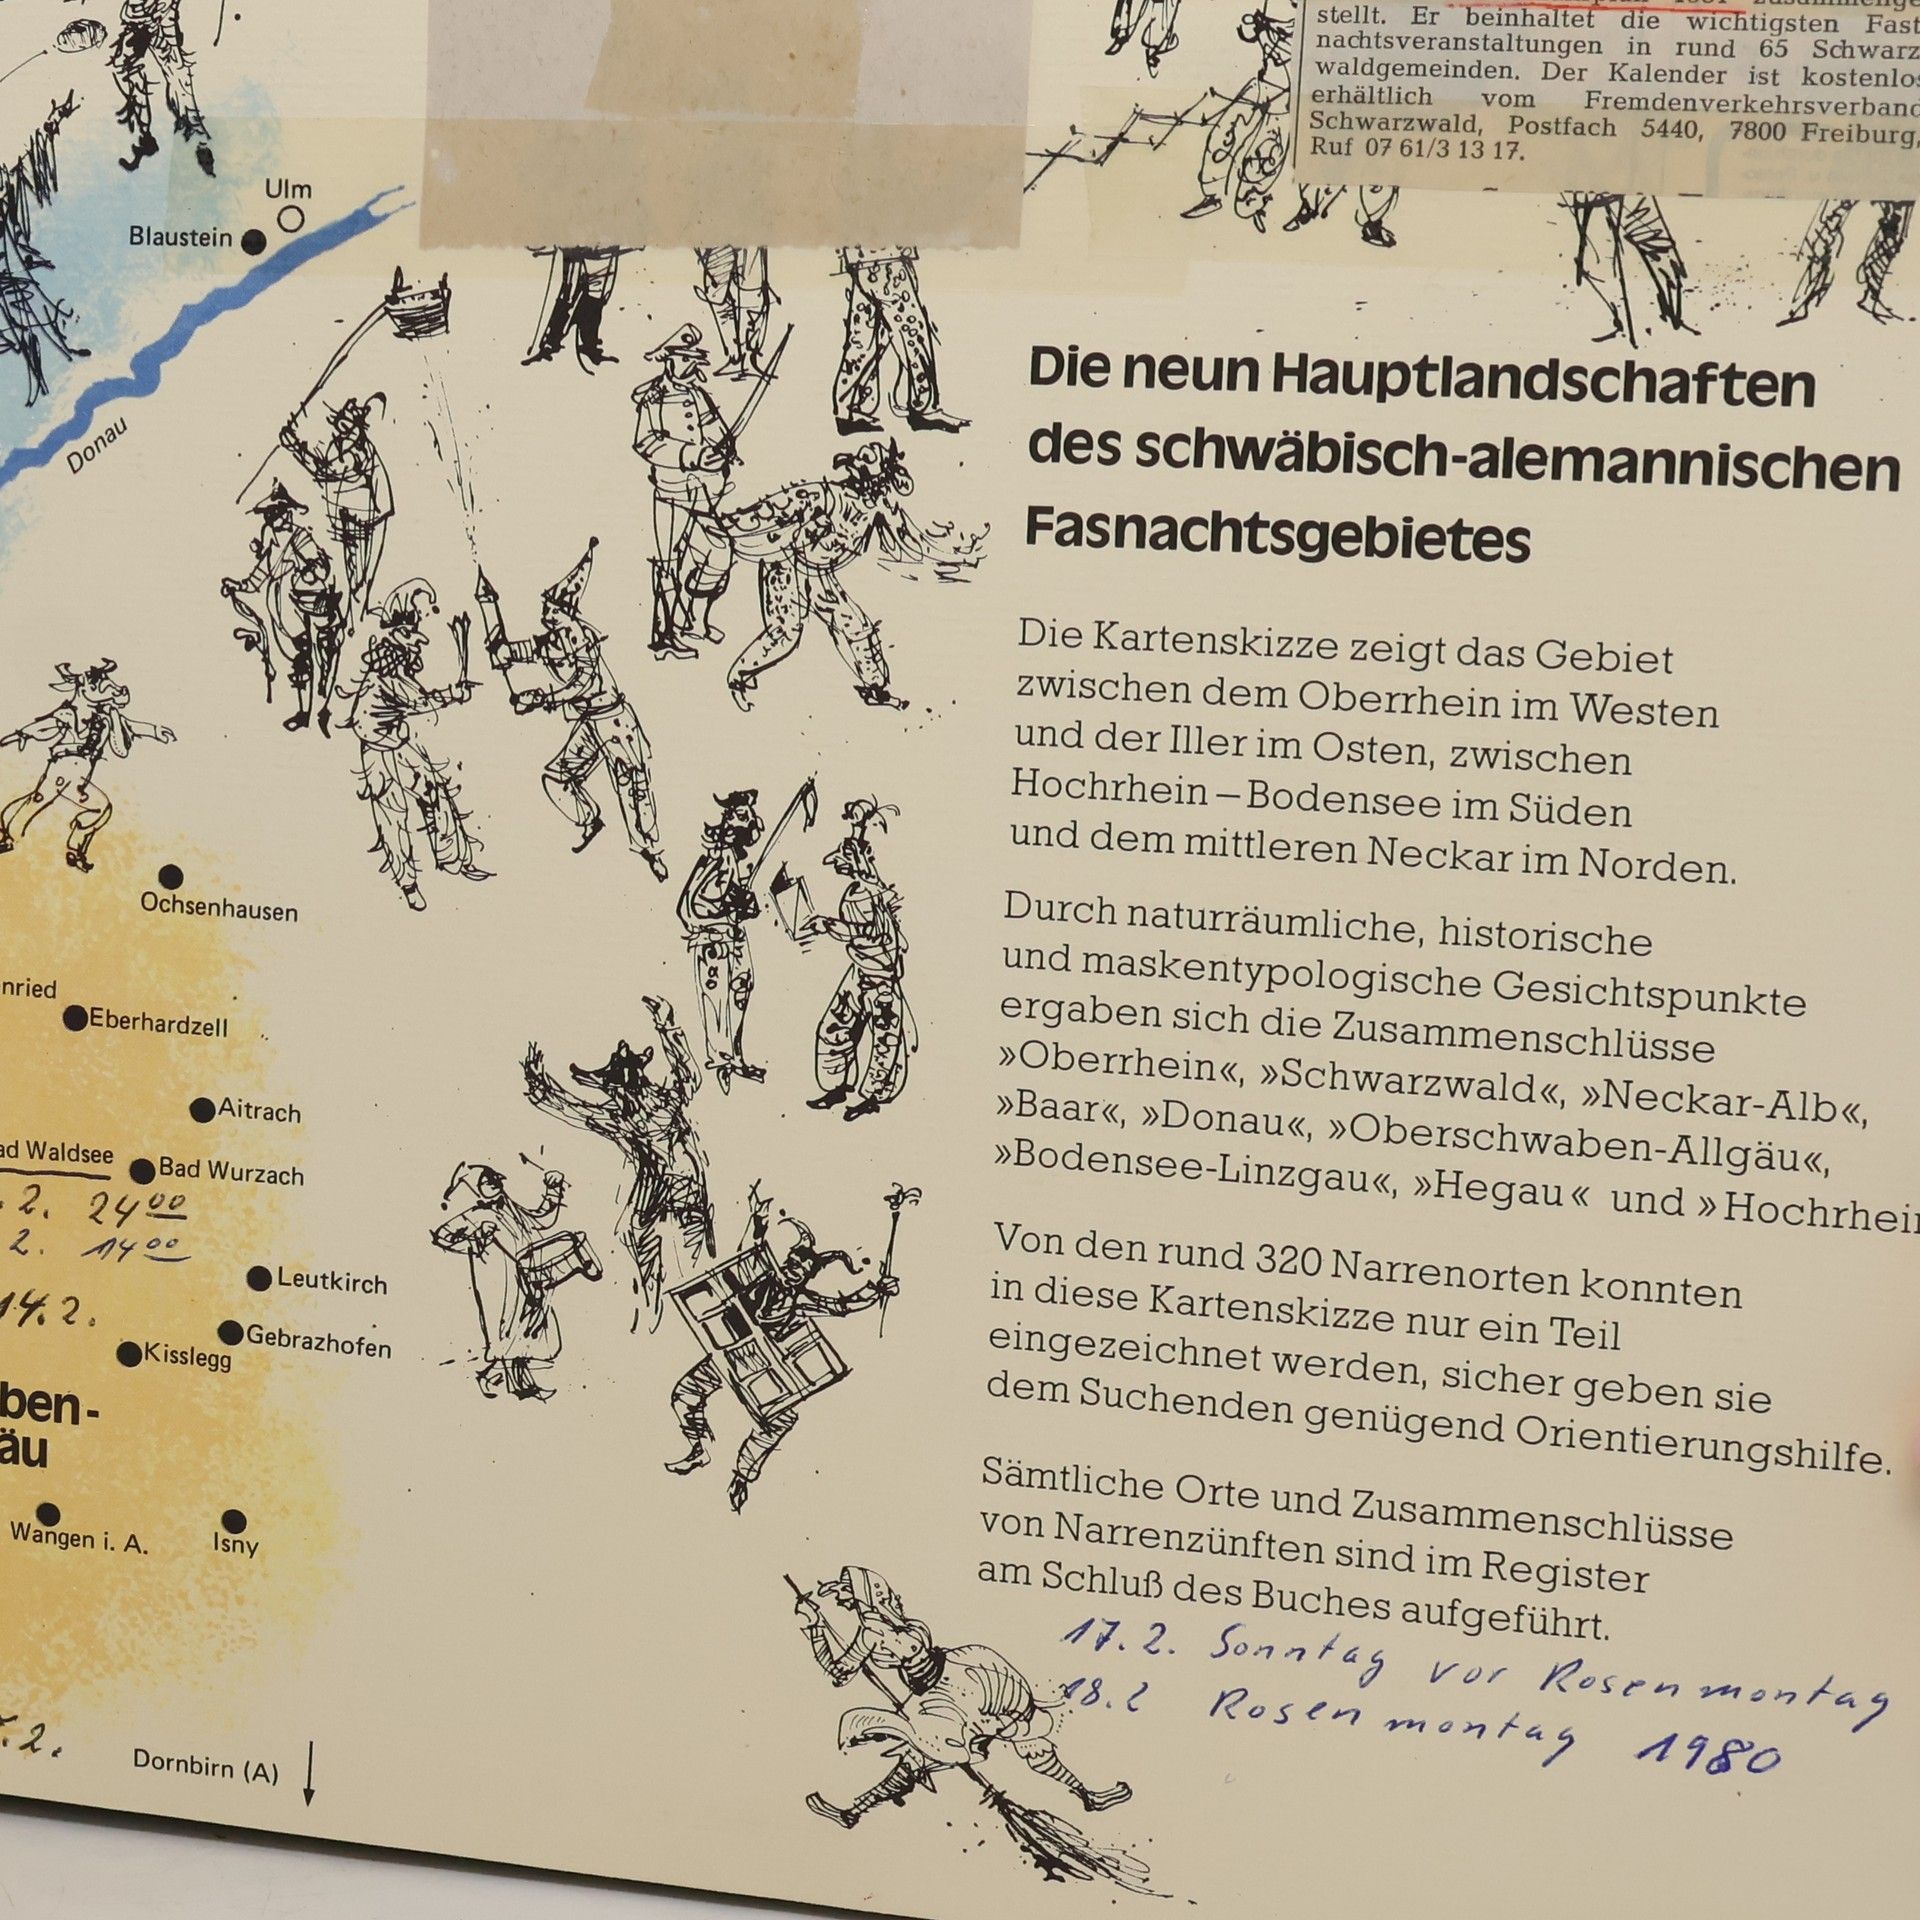 stellt. Er beinhaltet die wichtigsten Fast
nachtsveranstaltungen in rund 65 Schwarz
waldgemeinden. Der Kalender ist kostenlos
erhältlich vom Fremdenverkehrsverband
Schwarzwald, Postfach 5440, 7800 Freiburg,
Ruf 07 61/3 13 17.
Ulm
Blaustein
Donau
Die neun Hauptlandschaften
des schwäbisch-alemannischen
Fasnachtsgebietes
Die Kartenskizze zeigt das Gebiet
zwischen dem Oberrhein im Westen
und der Iller im Osten, zwischen
Hochrhein – Bodensee im Süden
und dem mittleren Neckar im Norden.
Durch naturräumliche, historische
und maskentypologische Gesichtspunkte
ergaben sich die Zusammenschlüsse
»Oberrhein«, »Schwarzwald«, »Neckar-Alb«,
»Baar«, »Donau«, »Oberschwaben-Allgäu«,
»Bodensee-Linzgau«, »Hegau« und »Hochrhein
Von den rund 320 Narrenorten konnten
in diese Kartenskizze nur ein Teil
eingezeichnet werden, sicher geben sie
dem Suchenden genügend Orientierungshilfe.
Sämtliche Orte und Zusammenschlüsse
von Narrenzünften sind im Register
am Schluß des Buches aufgeführt.
17.2. Sonntag vor Rosenmontag
18.2 Rosenmontag 1980
Ochsenhausen
nried
Eberhardzell
Aitrach
ad Waldsee
Bad Wurzach
. 2. 24 00
2. 14 00
Leutkirch
14.2.
Gebrazhofen
Kisslegg
ben-
äu
Wangen i. A.
Isny
.2.
Dornbirn (A)